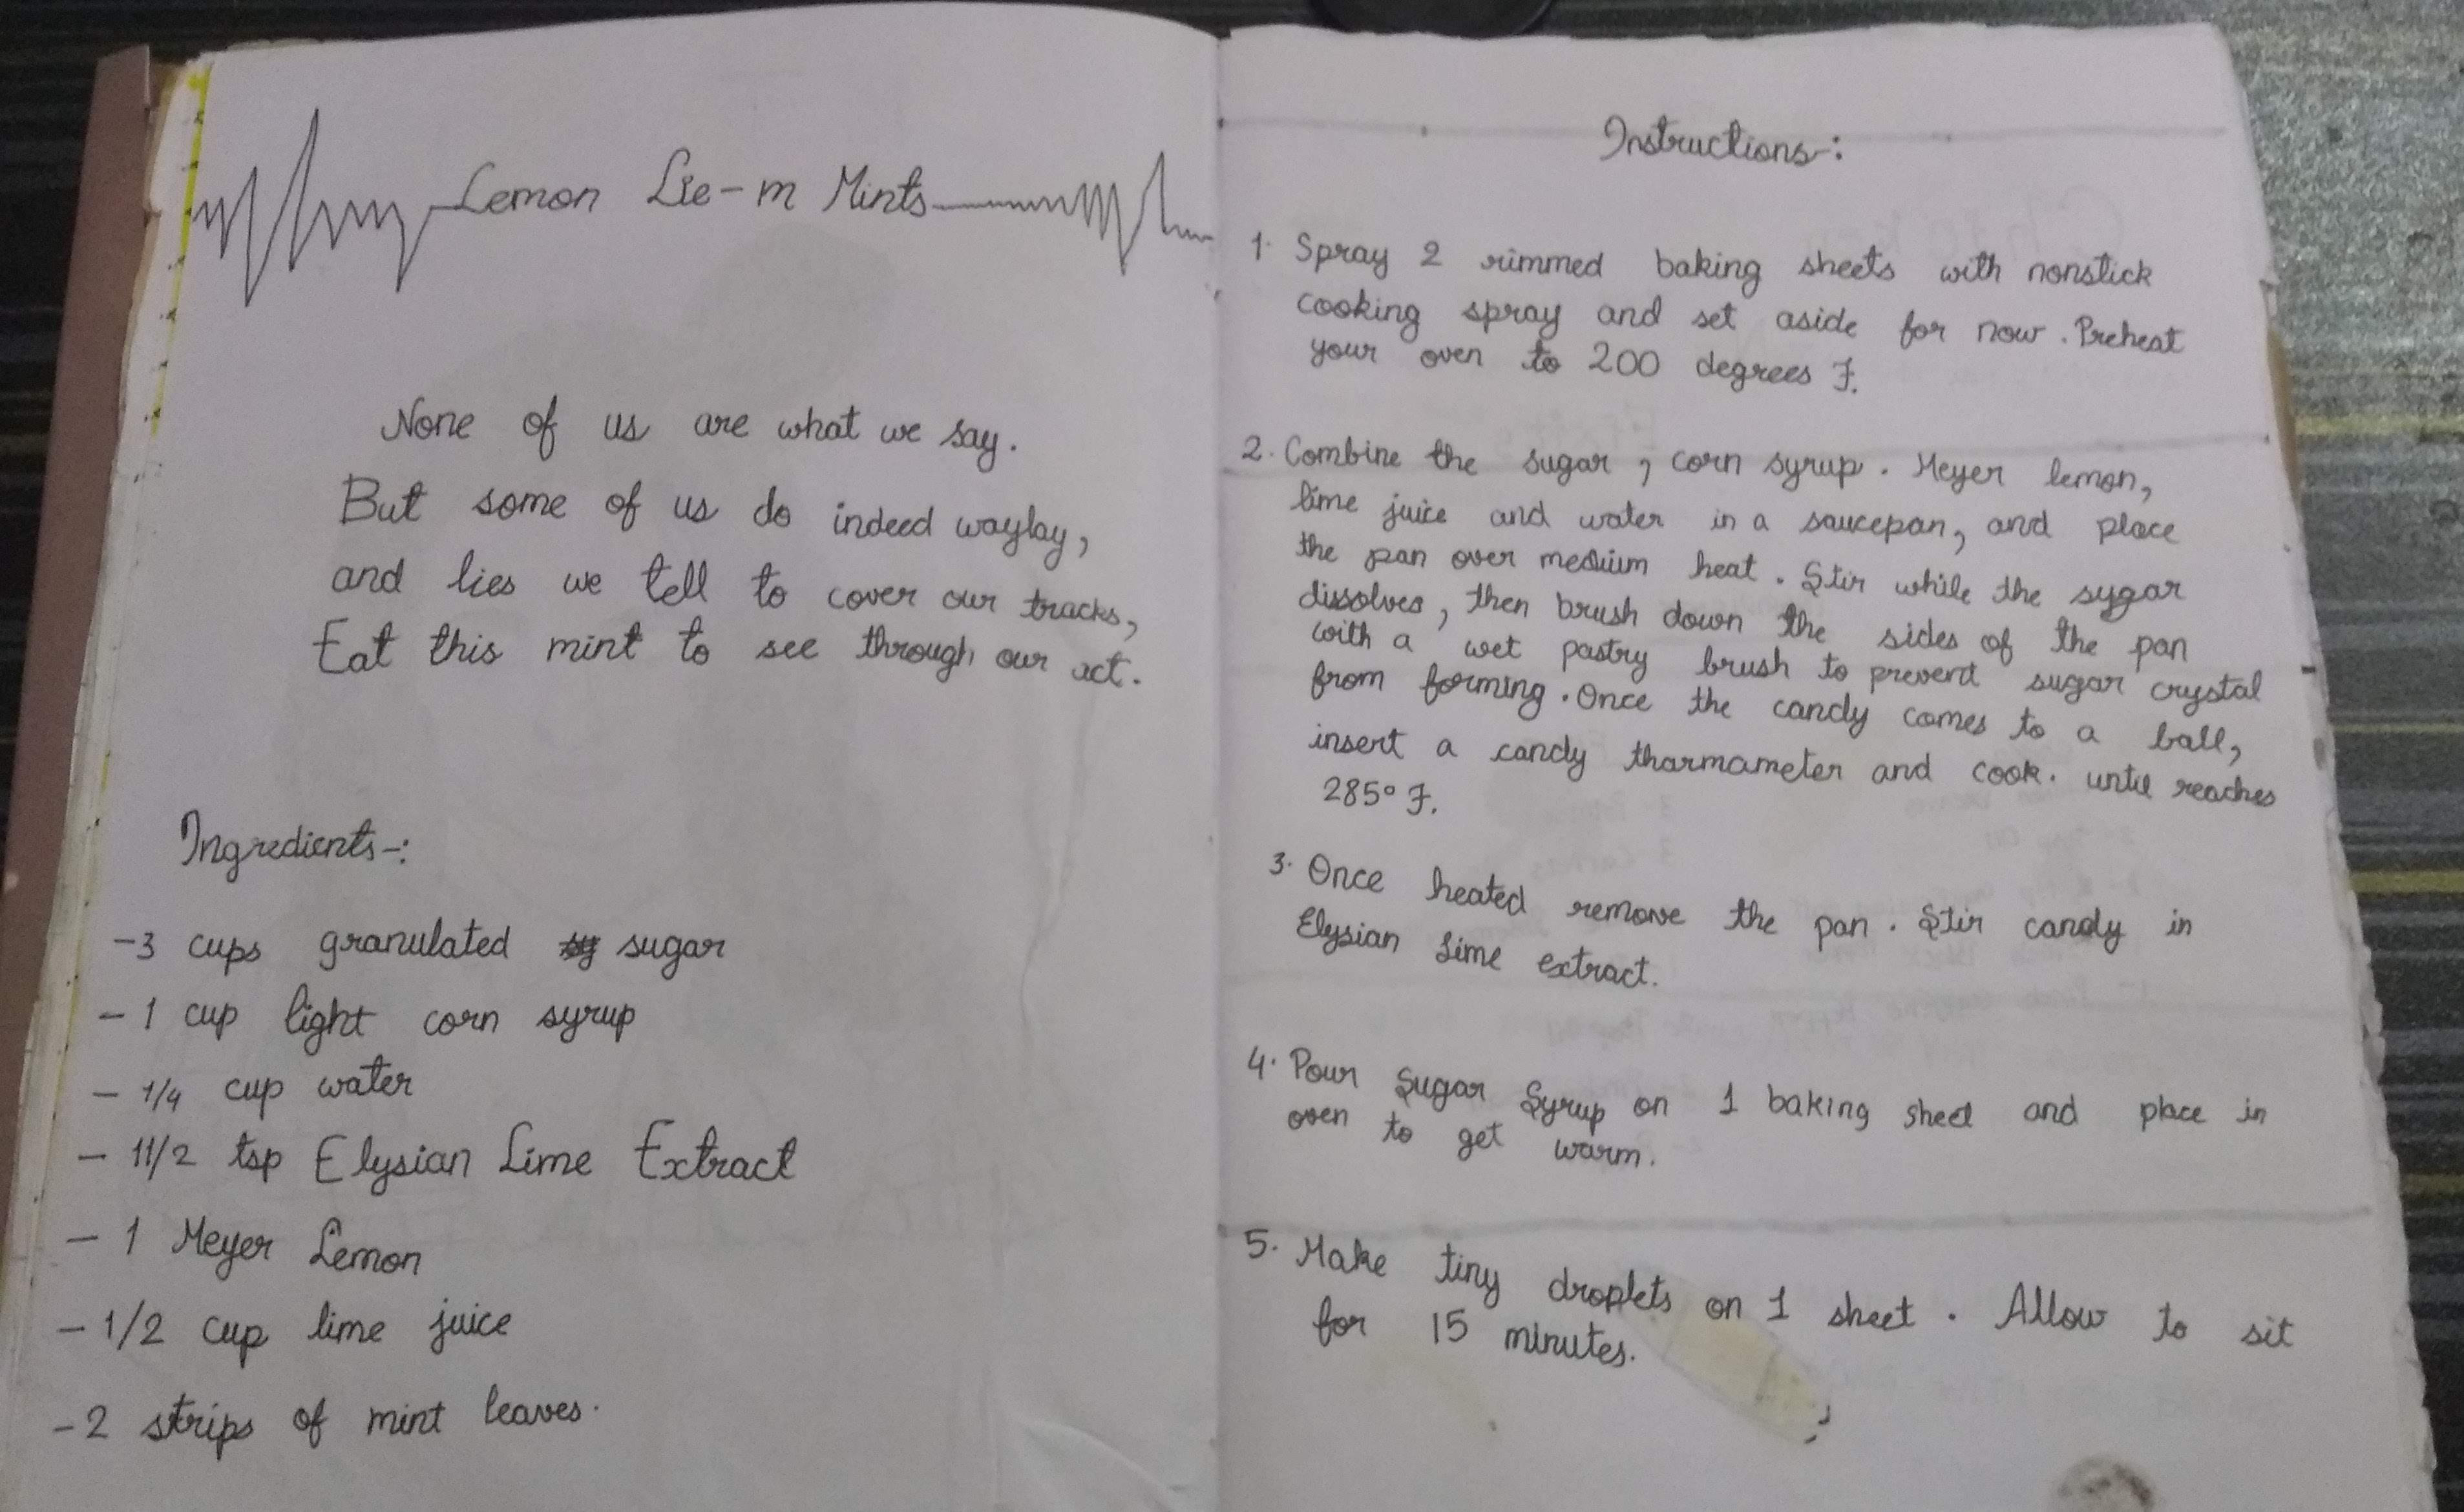 Lemon Lie-m Mints
None of us are what we say.
But some of us do indeed waylay,
and lies we tell to cover our tracks,
Eat this mint to see through our act.
Ingredients-:
-3 cups granulated sugar
- 1 cup light corn syrup
- 1/4 cup water
- 11/2 tsp Elysian Lime Extract
- 1 Meyer Lemon
- 1/2 cup lime juice
-2 strips of mint leaves.
Instructions-:
1. Spray 2 rimmed baking sheets with nonstick
cooking spray and set aside for now. Preheat
your oven to 200 degrees F.
2. Combine the sugar, corn syrup. Meyer lemon,
lime juice and water in a saucepan, and place
the pan over medium heat. Stir while the sygar
dissolves, then brush down the sides of the pan
with a wet pastry brush to prevent sugar crystal
from forming. Once the candy comes to a ball,
insert a candy tharmameter and cook. until reaches
285° F.
3. Once heated remove the pan. Stir candy in
Elysian Lime extract.
4. Pour Sugar Syrup on 1 baking sheet and place in
oven to get warm.
5. Make tiny droplets on 1 sheet. Allow to sit
for 15 minutes.